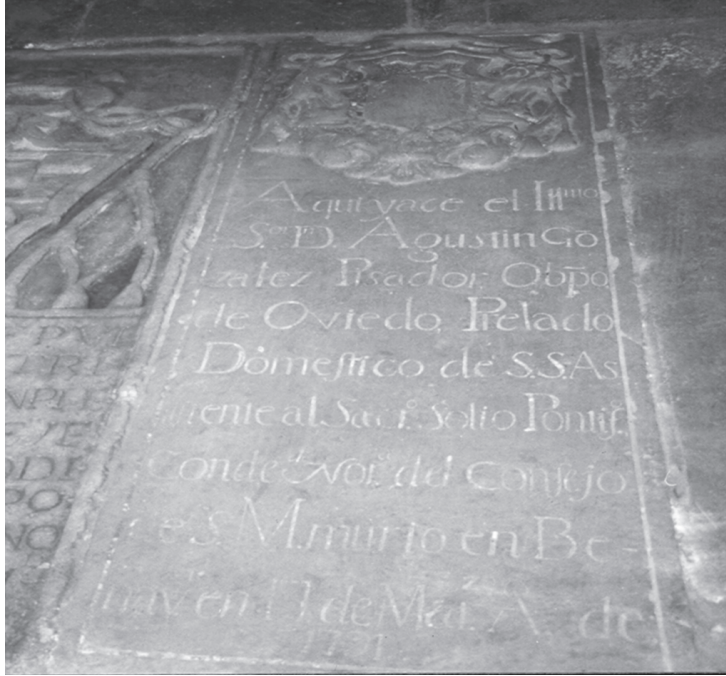 Aqui yace el Illmo
Sor D. Agustin Gō
zalez Pisador, Obpo
de Oviedo, Prelado
Domestico de S.S. As
istente al Sacr. Solio Pontif.
Conde de Nor.a del Consejo
de S. M. murio en Be-
nav.te en 17 de Mar.zo A, de
1791
NPLE
PO
NO